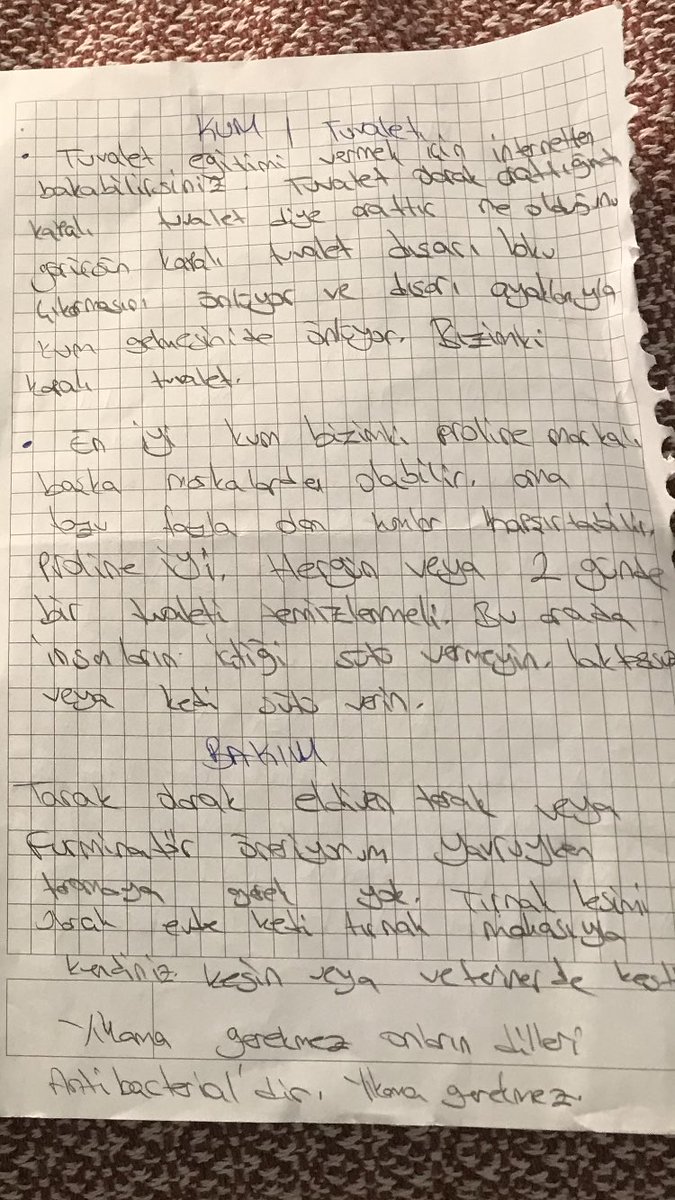 KUM / Tuvalet
• Tuvalet eğitimi vermek için internetten
bakabilirsiniz. Tuvalet olarak arattığında
kapalı tuvalet diye arattır ne olduğunu
görürsün kapalı tuvalet dışarı koku
çıkarmasını önlüyor ve dışarı ayaklarıyla
kum gelmesinide önlüyor. Bizimki
kapalı tuvalet.
• En iyi kum bizimki proline markalı
başka markalarda olabilir. ama
tozu fazla olan kumlar
proline iyi. Hergün veya 2 günde
bir tuvaleti temizlenmeli. Bu arada
insanların içtiği sütü vermeyin. laktozsuz
veya kedi sütü verin.
BAKIM
Tarak olarak eldiven tarak veya
Furminatör öneriyorum yavruyken
taramaya gerek yok. Tırnak kesimi
olarak evde kedi tırnak makasıyla
kendiniz kesin veya veterinerde
Yıkama gerekmez onların dilleri
Antibacterial'dir. Yıkama gerekmez.